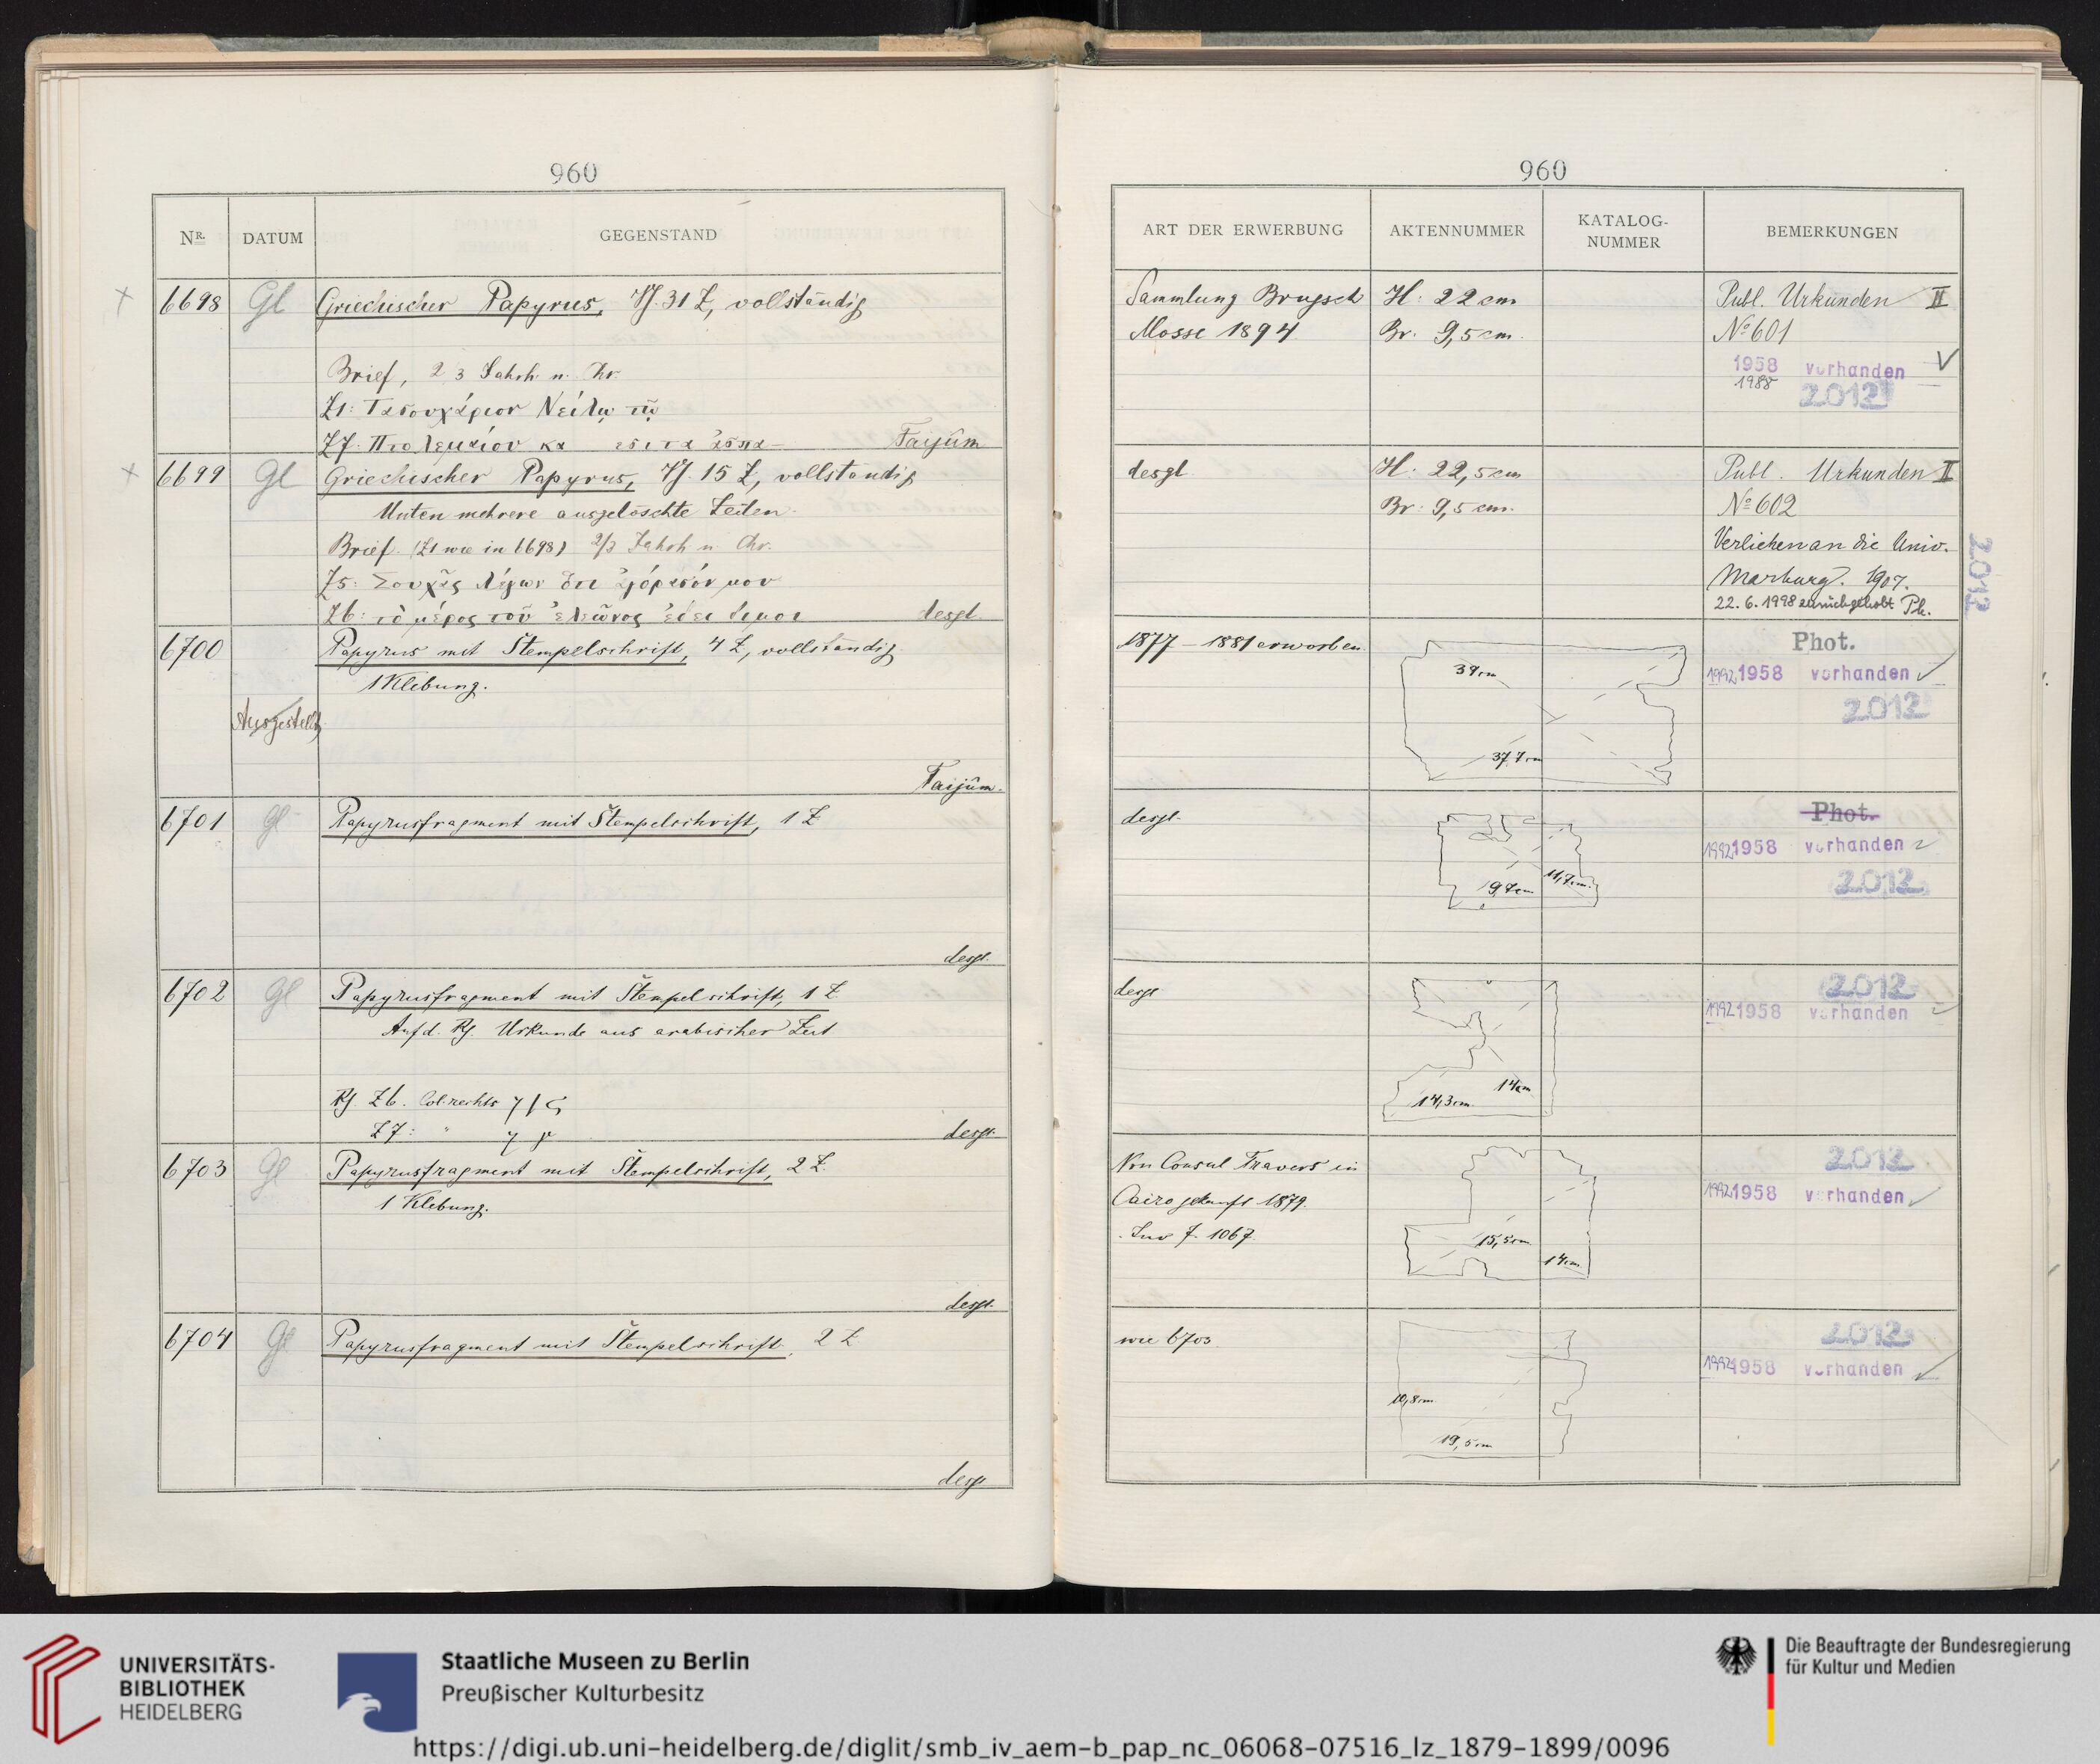 960
Nr. DATUM GEGENSTAND
6698 Gl Griechischer Papyrus, Vs. 31 Z, vollständig
Brief, 2 3 Jahrh. n. Chr.
Z1: Τασουχάριον Νείλῳ τῷ
Z7. Πτολεμαίου κα Faijûm
6699 Gl Griechischer Papyrus, Vs. 15 Z, vollständig
Unten mehrere ausgelöschte Zeilen.
Brief. (Z1 wie in 6698) 2/3 Jahrh. n. Chr.
Z5: λέγων ὅτι ἀγόρασόν μου
Z6: τὸ μέρος τοῦ ἐλεῶνος desgl.
6700 Papyrus mit Stempelschrift, 4 Z, vollständig
1 Klebung.
Ausgestellt
Faijûm.
6701 Gl Papyrusfragment mit Stempelschrift, 1 Z
desgl.
6702 Gl Papyrusfragment mit Stempelschrift, 1 Z
Auf d. Rs. Urkunde aus arabischer Zeit
Rs. Z6. Col. rechts
Z7: "
desgl.
6703 Gl Papyrusfragment mit Stempelschrift, 2 Z.
1 Klebung.
desgl.
6704 Gl Papyrusfragment mit Stempelschrift, 2 Z
desgl
960
ART DER ERWERBUNG AKTENNUMMER KATALOG-NUMMER BEMERKUNGEN
Sammlung Brugsch H: 22 cm Publ. Urkunden II
Mosse 1894 Br. 9,5 cm. No 601
1958 vorhanden V
1988 2012
desgl. H: 22,5 cm Publ. Urkunden II
Br: 9,5 cm. No 602
Verliehen an die Univ.
Marburg. 1907.
22.6.1998 zurückgeholt Pl.
2012
1877–1881 erworben Phot.
39 cm
1992 1958 vorhanden
2012
37,7 cm
desgl. Phot.
1992 1958 vorhanden
9,7 cm 11,7 cm.
2012
desgl 2012
1992 1958 vorhanden
14 cm
14,3 cm
Von Consul Travers in 2012
Cairo gekauft 1879. 1992 1958 vorhanden
Inv. J. 1067.
15,5 cm
14 cm
wie 6703 2012
1992 1958 vorhanden
10,8 cm
19,5 cm
UNIVERSITÄTS-
BIBLIOTHEK
HEIDELBERG
Staatliche Museen zu Berlin
Preußischer Kulturbesitz
Die Beauftragte der Bundesregierung
für Kultur und Medien
https://digi.ub.uni-heidelberg.de/diglit/smb_iv_aem-b_pap_nc_06068-07516_lz_1879-1899/0096